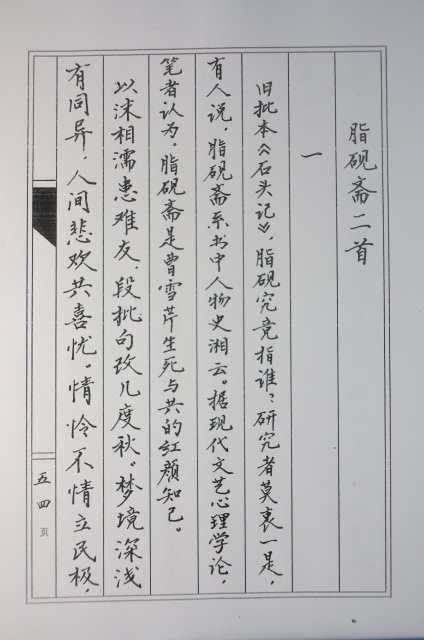 脂砚斋二首
一
旧批本《石头记》，脂砚究竟指谁？研究者莫衷一是，
有人说，脂砚斋系书中人物史湘云。据现代文艺心理学论，
笔者认为，脂砚斋是曹雪芹生死与共的红颜知己。
以沫相濡患难友，段批句攷几度秋。梦境深浅
有同异，人间悲欢共喜忧。情怜不情立民极，
五四页